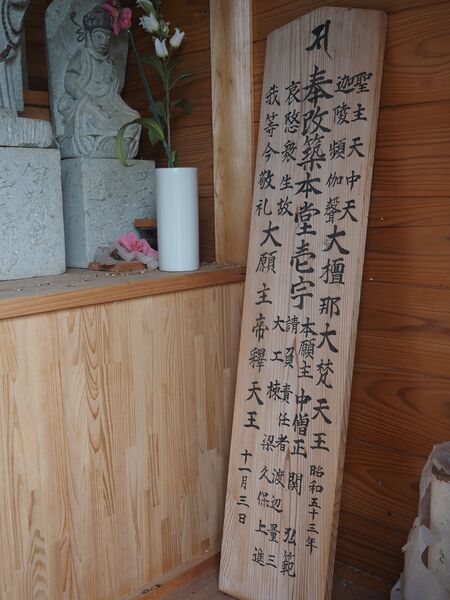 聖主天中天
迦陵頻伽聲
大檀那大梵天王
昭和五十三年
奉改築本堂壱宇
本願主中僧正 関 弘範
請負責任者渡辺量三
大工棟梁久保上進
哀愍衆生故
我等今敬礼
大願主帝釋天王
十一月三日